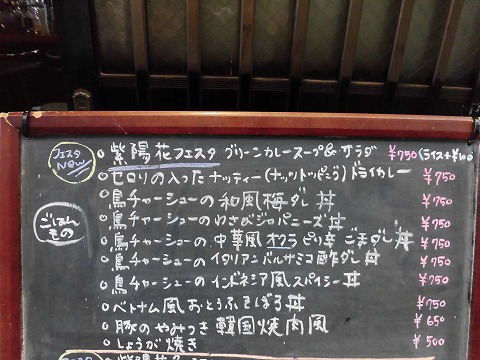 フェスタ NEW
紫陽花フェスタ グリーンカレースープ&サラダ ¥750 (ライス+¥100
セロリの入ったナッティー(ナッツトッピング)ドライカレー ¥750
ごはんもの
鳥チャーシューの和風梅ダレ丼 ¥750
鳥チャーシューのわさびジャパニーズ丼 ¥750
鳥チャーシューの中華風オクラピリ辛ごまダレ丼 ¥750
鳥チャーシューのイタリアンバルサミコ酢ダレ丼 ¥750
鳥チャーシューのインドネシア風スパイシー丼 ¥750
ベトナム風おとうふそぼろ丼 ¥750
豚のやみつき韓国焼肉風 ¥650
しょうが焼き ¥500